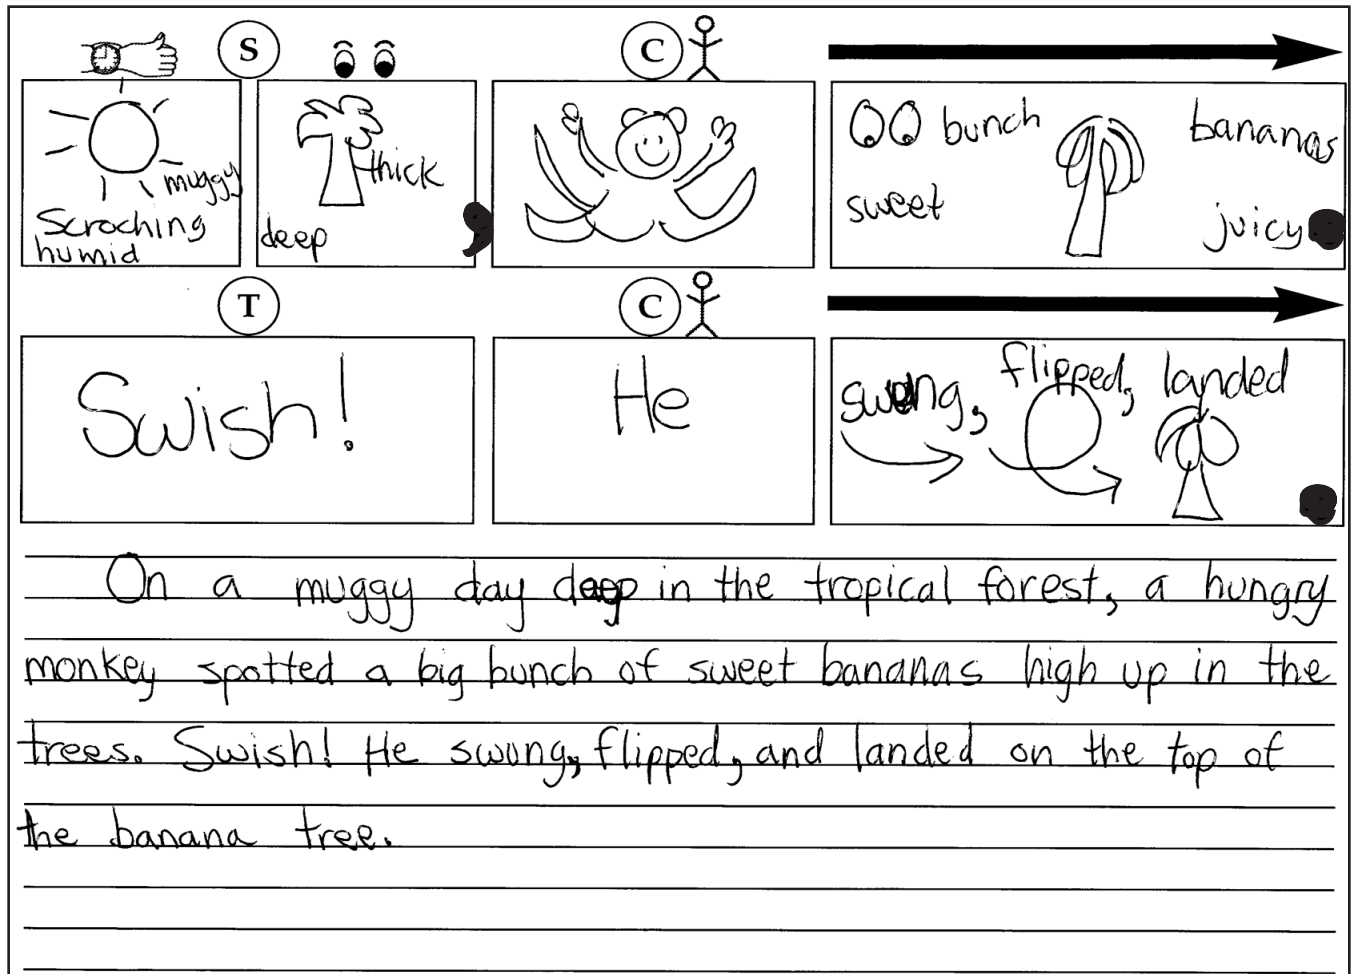 S
C
muggy
Scroching
humid
thick
deep
,
bunch
bananas
sweet
juicy
T
C
Swish!
He
swung,
flipped,
landed
On a muggy day deep in the tropical forest, a hungry
monkey spotted a big bunch of sweet bananas high up in the
trees. Swish! He swung, flipped, and landed on the top of
the banana tree.